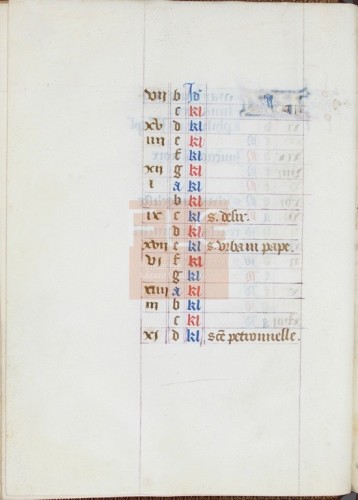 vii b Id
c kl
xv d kl
iiii e kl
f kl
xii g kl
i a kl
b kl
ix c kl s. desir.
d kl
xvii e kl s. vrbain pape.
vi f kl
g kl
xiiii a kl
iii b kl
c kl
xi d kl scē petronnelle.